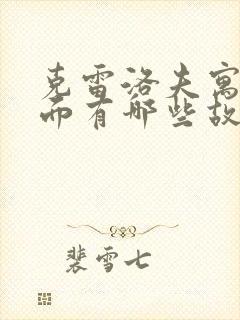 克雷洛夫寓
而有哪些故
裴雪七